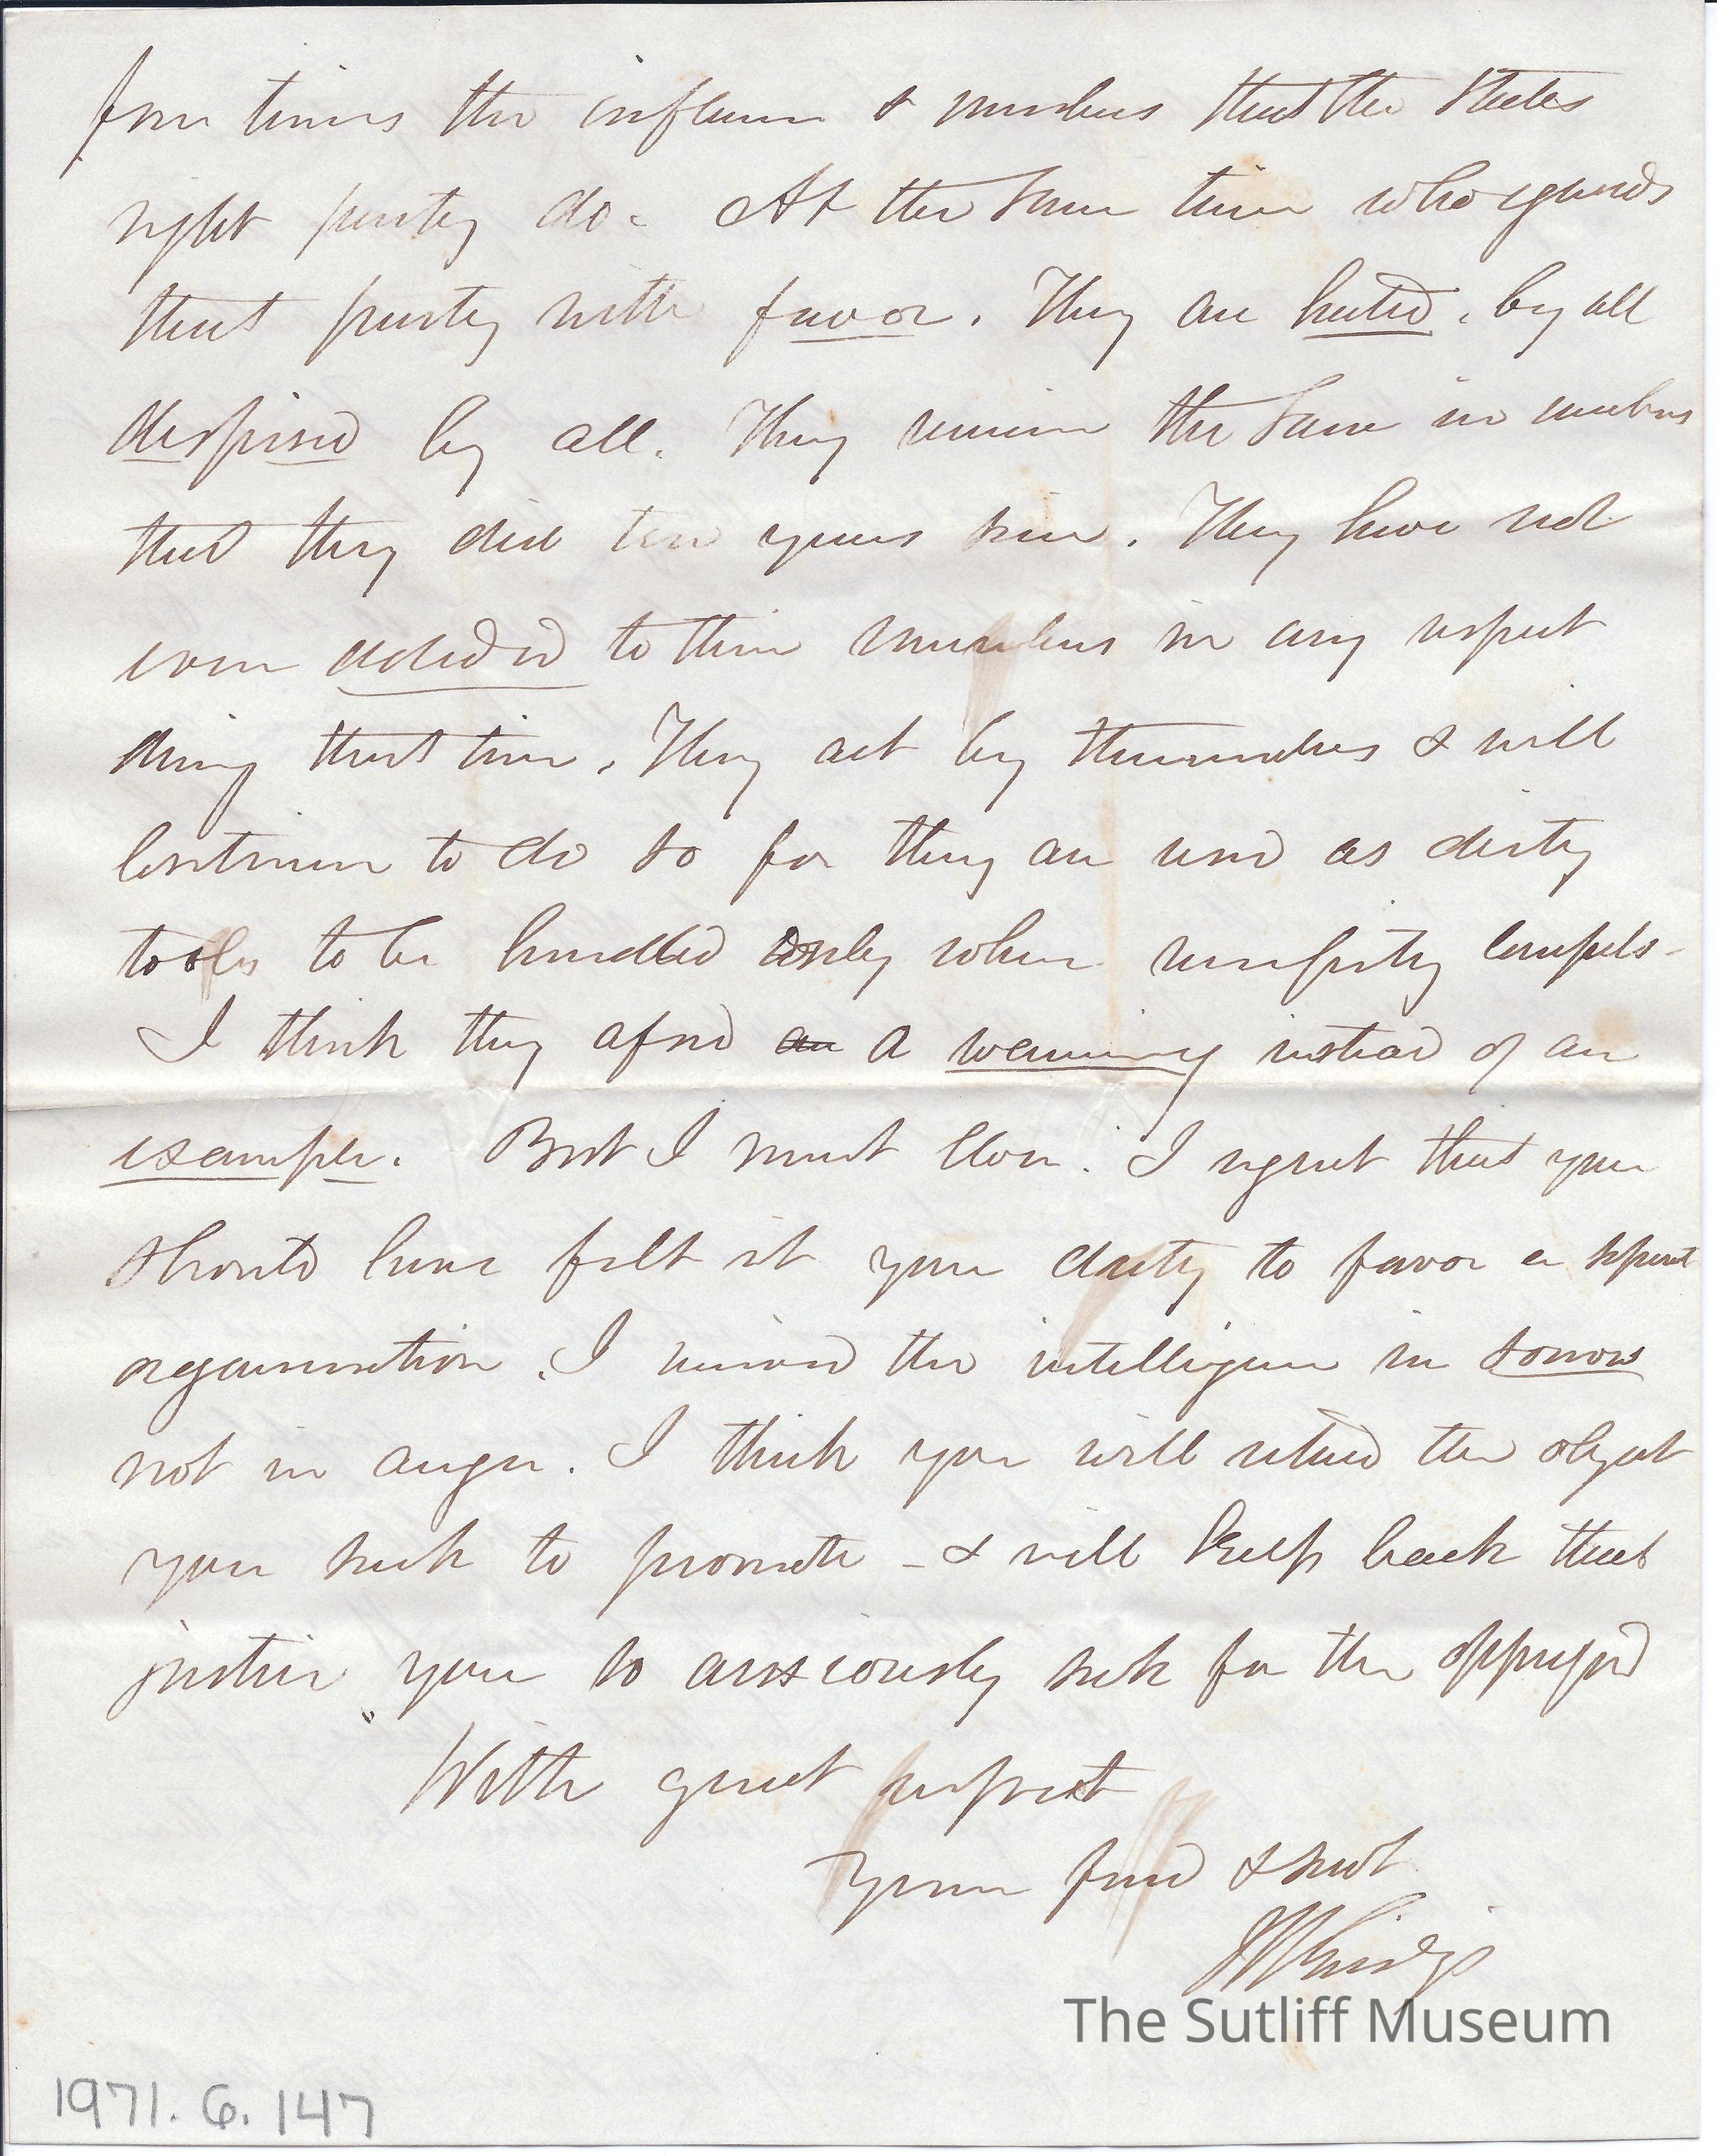 four times the influence & numbers that the States
right party do. At the same time who regards
that party with favor. They are hated, by all
despised by all. They remain the same in numbers
that they did ten years since. They have not
even added to their numbers in any respect
during that time. They act by themselves & will
continue to do so for they are used as dirty
tools to be handled only when necessity compels-
I think they afford an a warning instead of an
example. But I must close. I regret that you
should have felt it your duty to favor a seperat
organization. I received the intelligence in sorrow
not in anger. I think you will retard the object
you seek to promote - & will keep back that
justice you so anxiously seek for the oppressed
With great respect
Your friend & Servt
J R Giddings
The Sutliff Museum
1971.6.147